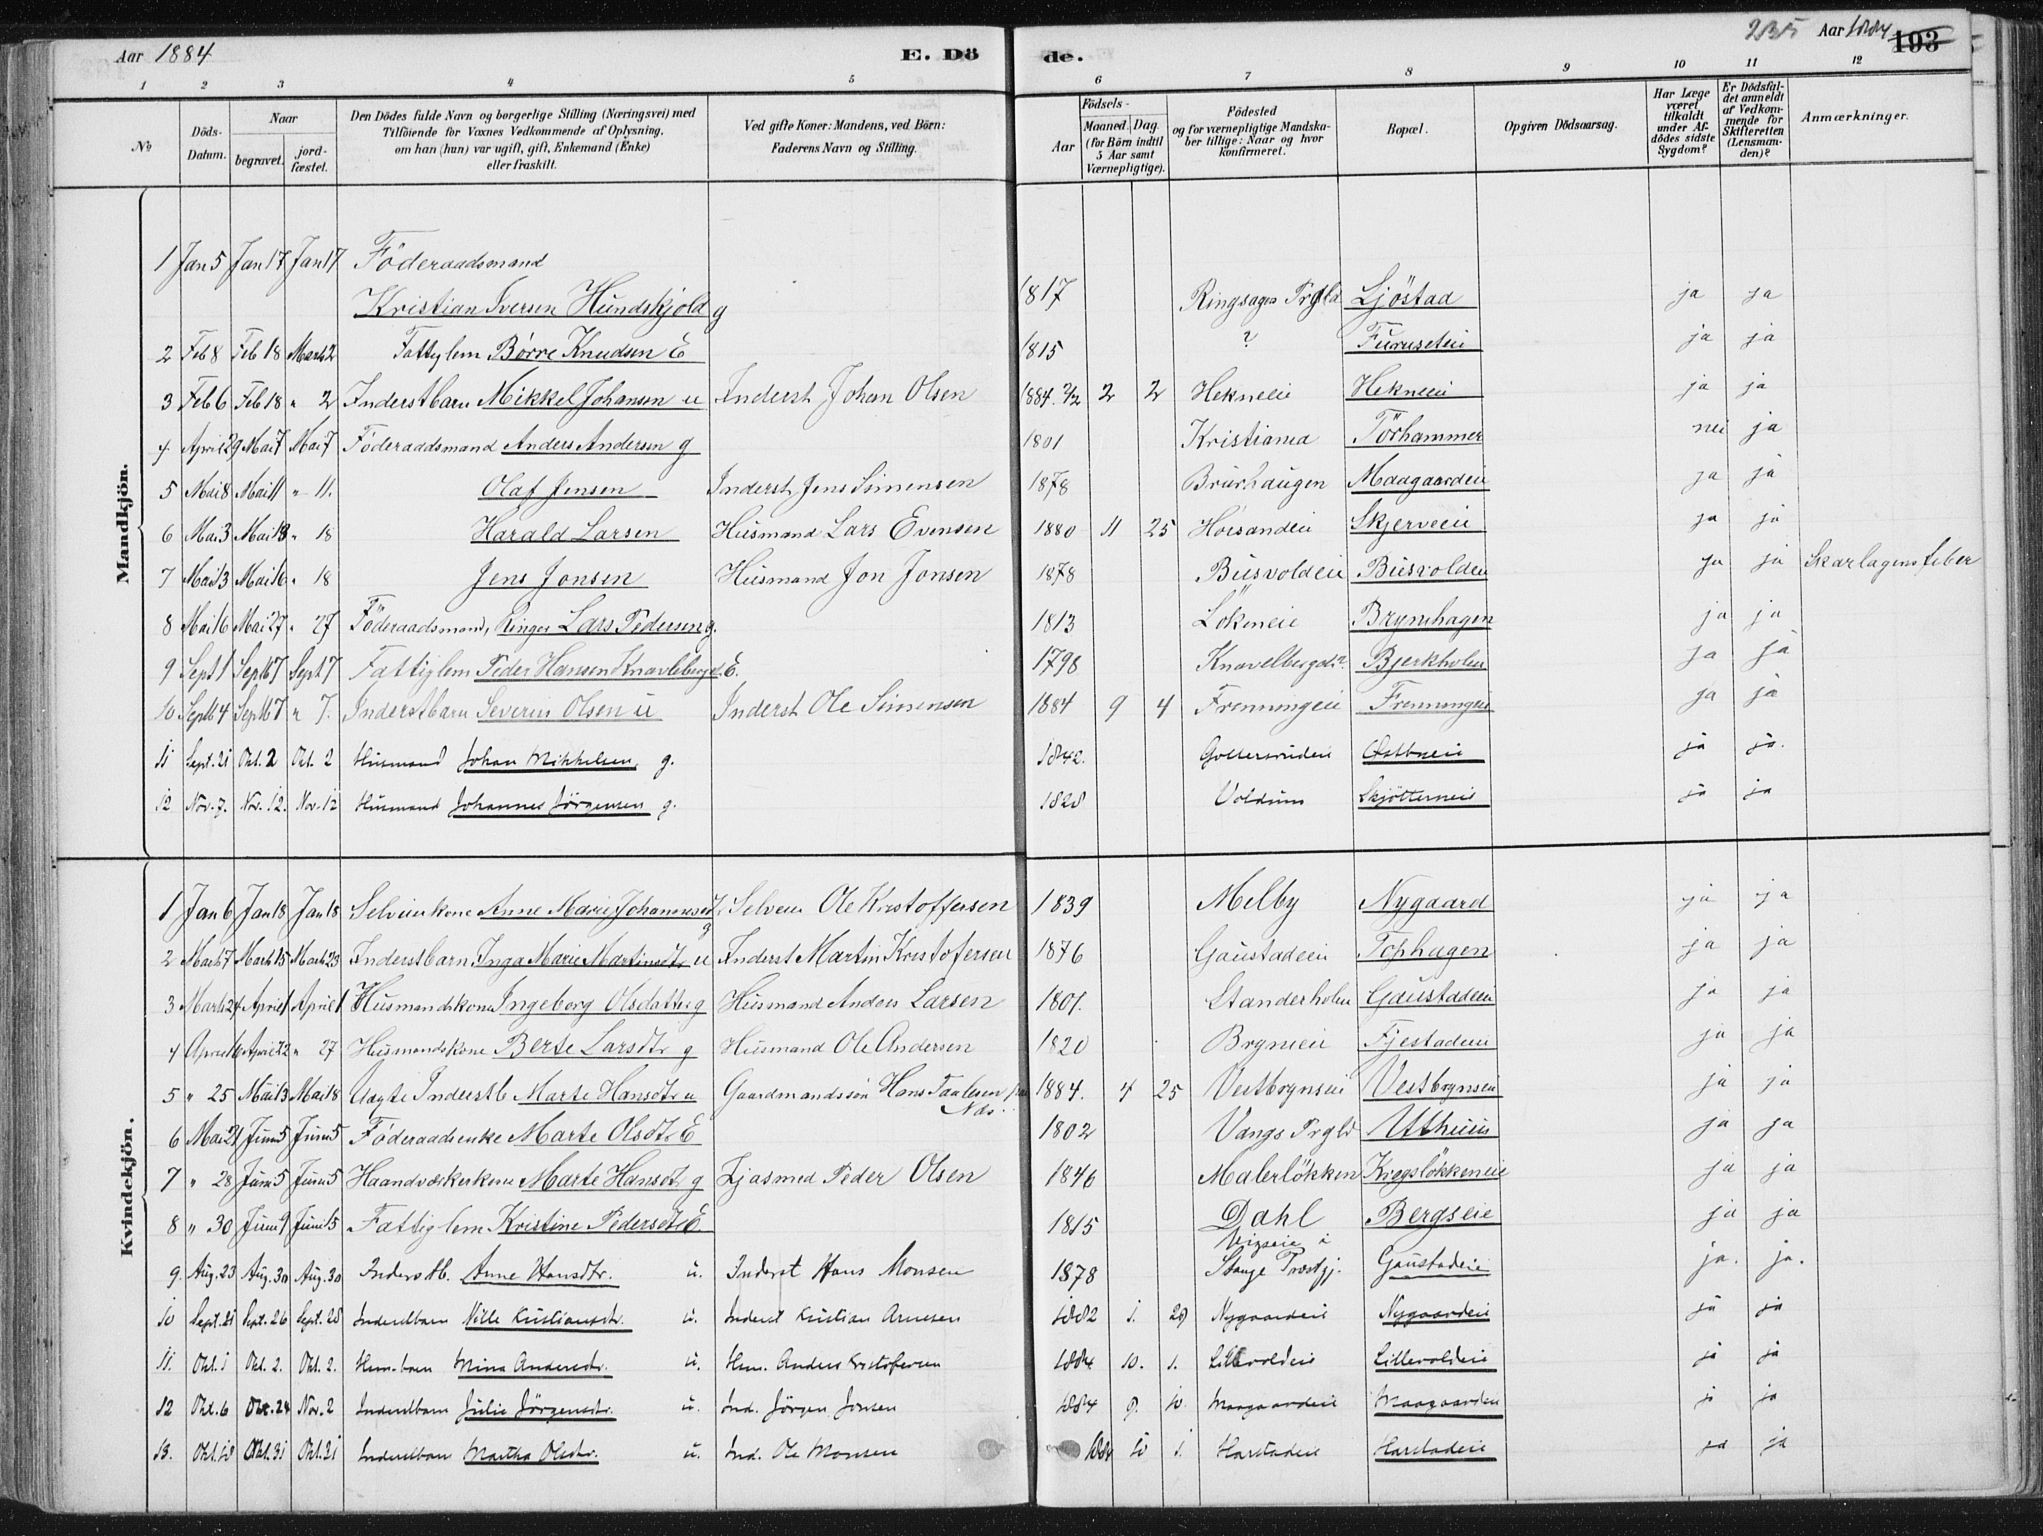 Aar 1884 E. Dö
de. 235 Aar 1884 193
1 2 3 4 5 6 7 8 9 10 11 12
№
Döds-Datum.
Naar
begravet.
jord-fæstet.
Den Dödes fulde Navn og borgerlige Stilling (Næringsvei) med
Tilföiende for Voxnes Vedkommende af Oplysning,
om han (hun) var ugift, gift, Enkemand (Enke)
eller fraskilt.
Ved gifte Koner: Mandens, ved Börn:
Faderens Navn og Stilling.
Födsels-
Aar
Maaned. Dag.
(for Börn indtil
5 Aar samt
Værnepligtige).
Födested
og for værnepligtige Mandska-
ber tillige: Naar og hvor
konfirmeret.
Bopæl.
Opgiven Dödsaarsag.
Har Læge
været
tilkaldt
under Af-
dödes sidste
Sygdom?
Er Dödsfal-
det anmeldt
af Vedkom-
mende for
Skifteretten
(Lensman-
den)?
Anmærkninger.
Mandkjön.
1 Jan 5 Jan 17 Jan 17 Föderaadsmand
Kristian Iversen Hundskjold g 1817 Ringsager Prgld Ljöstad ja ja
2 Feb 8 Feb 18 Marts 2 Fattiglem Börre Knudsen E 1815 ? Furuseteie ja ja
3 Feb 6 Feb 18 " 2 Inderstbarn Mikkel Johansen u Inderst Johan Olsen 1884 2 2 Hekneeie Hekneeie ja ja
4 April 29 Mai 7 Mai 7 Föderaadsmand Anders Andersen g 1801 Kristiania Törhammer nei ja
5 Mai 8 Mai 11 " 11. Olaf Jensen Inderst Jens Simensen 1878 Brurhaugen Maagaardeie ja ja
6 Mai 3 Mai 18 " 18 Harald Larsen Husmand Lars Evensen 1880 11 25 Hoisandeie Skjerveeie ja ja
7 Mai 3 Mai 16 " 18 Jens Jonsen Husmand Jon Jonsen 1878 Busvoldeie Busvoldeie ja ja Skarlagensfeber
8 Mai 16 Mai 27 " 27 Föderaadsmand, Ringer Lars Pedersen g. 1813 Lökeneie Brynihagen ja ja
9 Sept 1 Sept 7 Sept 7 Fattiglem Peder Hansen Knavlebergd E. 1798 Knavelbergd? Bjerkholen ja ja
10 Sept 4 Sept 7 " 7. Inderstbarn Severin Olsen u Inderst Ole Simensen 1884 9 4 Frenningeie Frenningeie ja ja
11 Sept. 21 Okt. 2 Okt. 2 Husmand Johan Mikkelsen g. 1842. Gollersrudeie Östbyeie ja ja.
12 Nov. 7. Nov. 12. Nov. 12 Husmand Johannes Jörgensen g. 1828 Voldum Skjötterneie ja ja
Kvindekjön.
1 Jan 6 Jan 18 Jan 18 Selveierkone Anne Marie Johannesd. g Selveier Ole Kristoffersen 1839 Melby Nygaard ja ja
2 Marts 7 Marts 15 Marts 23 Inderstbarn Inga Marie Martinsdtr u Inderst Martin Kristofersen 1876 Gaustadeie Tophagen ja ja
3 Marts 24 April 1 April 1 Husmandskone Ingeborg Olsdatter g Husmand Anders Larsen 1801. Standerholen Gaustadeie ja ja
4 April 16 April 22 " 27 Husmandskone Berte Larsdtr g Husmand Ole Andersen 1820 Brynieie Fjestadeie ja ja
5 " 25 Mai 13 Mai 18 Uægte Inderstb Marte Hansdtr u Gaardmandssön Hans Taalesen fra Næs 1884. 4 25 Vestbrynseie Vestbrynseie ja ja
6 Mai 21 Juni 5 Juni 5 Föderaadsenke Marte Olsdtr E 1802 Vangs Prgld Uthuus ja ja
7 " 28 Juni 5 Juni 5 Haandværkerkone Marte Hansdtr g Gjasmed Peder Olsen 1846 Malerlökken Krogslökkeneie ja ja
8 " 30 Juni 9 Juni 15 Fattiglem Kristine Pedersdtr E 1815 Dahl Bergseie ja ja
9. Aug. 23 Aug. 30 Aug. 30 Inderstb. Anne Hansdtr. u. Inderst Hans Monsen 1878 Vigseie i Stange Præstgj. Gaustadeie ja. ja.
10 Sept. 21 Sept. 26 Sept. 28 Inderstbarn Nille Kristiansdtr. u. Inderst Kristian Arnesen 1882 1. 29 Nygaardeie Nygaardeie ja ja
11. Okt. 1 Okt. 2. Okt. 2. Hum.barn Mina Andersdtr. u. Hum. Anders Kristofersen 1884 10. 1. Lillevoldeie Lillevoldeie ja ja
12 Okt. 6 Okt. 24 Nov. 2 Inderstbarn Julie Jörgensdtr. u. Ind. Jörgen Jonsen 1884 9. 10. Maagaardeie Maagaardeie ja ja
13. Okt. 18 Okt. 31 Okt. 21 Inderstbarn Martha Olsdtr. u. Ind. Ole Monsen 1884 10 1. Harstadeie Harstadeie ja ja